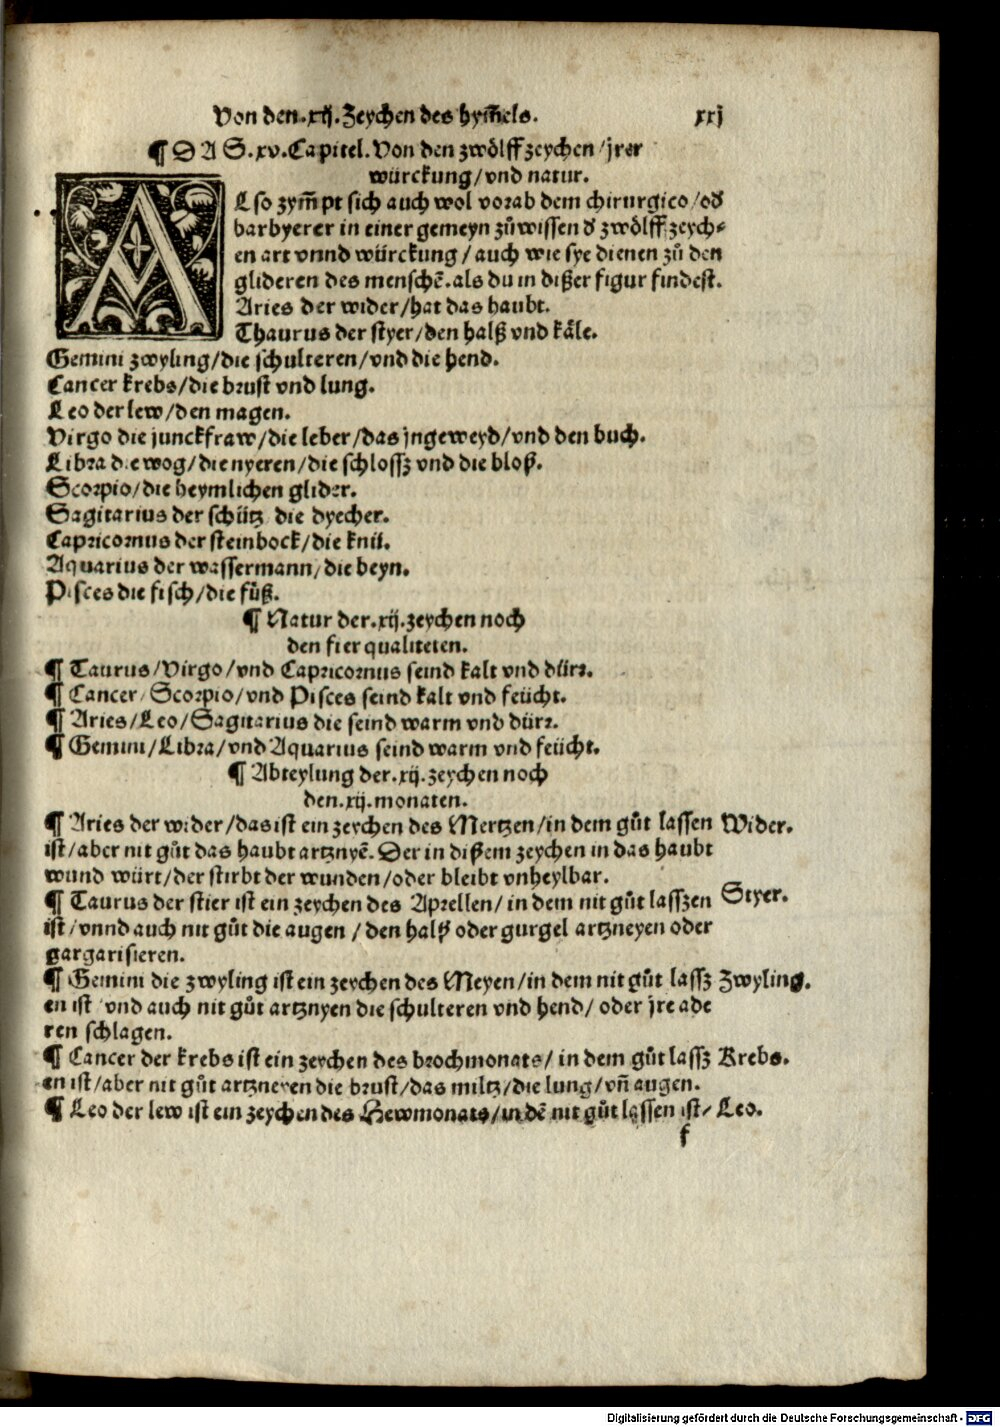 Von den .xij. Zeychen des hym̃els. xxj
¶ DAS .xv. Capitel. Von den zwoͤlff zeychen / jrer
würckung / vnd natur.
Also zym̃pt sich auch wol vorab dem chirurgico / od̕
barbyerer in einer gemeyn zů wissen d̕ zwoͤlff zeych⸗
en art vnnd würckung / auch wie sye dienen zů den
glideren des menschẽ. als du in dißer figur findest.
Aries der wider / hat das haubt.
Thaurus der styer / den halß vnd kaͤle.
Gemini zwyling / die schulteren / vnd die hend.
Cancer krebs / die brust vnd lung.
Leo der lew / den magen.
Virgo die junckfraw / die leber / das jngeweyd / vnd den buch.
Libra die wog / die nyeren / die schlossz vnd die bloß.
Scorpio / die heymlichen glider.
Sagitarius der schütz die dyecher.
Capricornus der steinbock / die knü.
Aquarius der wassermann / die beyn.
Pisces die fisch / die füß.
¶ Natur der .xij. zeychen noch
den fier qualiteten.
¶ Taurus / Virgo / vnd Capricornus seind kalt vnd dürr.
¶ Cancer / Scorpio / vnd Pisces seind kalt vnd feücht.
¶ Aries / Leo / Sagitarius die seind warm vnd dürr.
¶ Gemini / Libra / vnd Aquarius seind warm vnd feücht.
¶ Abteylung der .xij. zeychen noch
den .xij. monaten.
¶ Aries der wider / das ist ein zeychen des Mertzen / in dem gůt lassen Wider.
ist / aber nit gůt das haubt artznyẽ. Der in dißem zeychen in das haubt
wund würt / der stirbt der wunden / oder bleibt vnheylbar.
¶ Taurus der stier ist ein zeychen des Aprellen / in dem nit gůt lasszen Styer.
ist / vnnd auch nit gůt die augen / den halß oder gurgel artzneyen oder
gargarisieren.
¶ Gemini die zwyling ist ein zeychen des Meyen / in dem nit gůt lassz Zwyling.
en ist / vnd auch nit gůt artznyen die schulteren vnd hend / oder jre ade
ren schlagen.
¶ Cancer der krebs ist ein zeychen des brochmonats / in dem gůt lassz Krebs.
en ist / aber nit gůt artzneyen die brust / das miltz / die lung / vñ augen.
¶ Leo der lew ist ein zeychen des Hewmonats / in dẽ nit gůt lassen ist⸗ Leo.
f
Digitalisierung gefördert durch die Deutsche Forschungsgemeinschaft - DFG